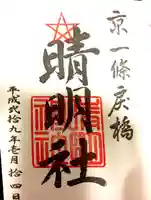 京一條戻橋
晴明社
平成弐拾九年壱月拾四日